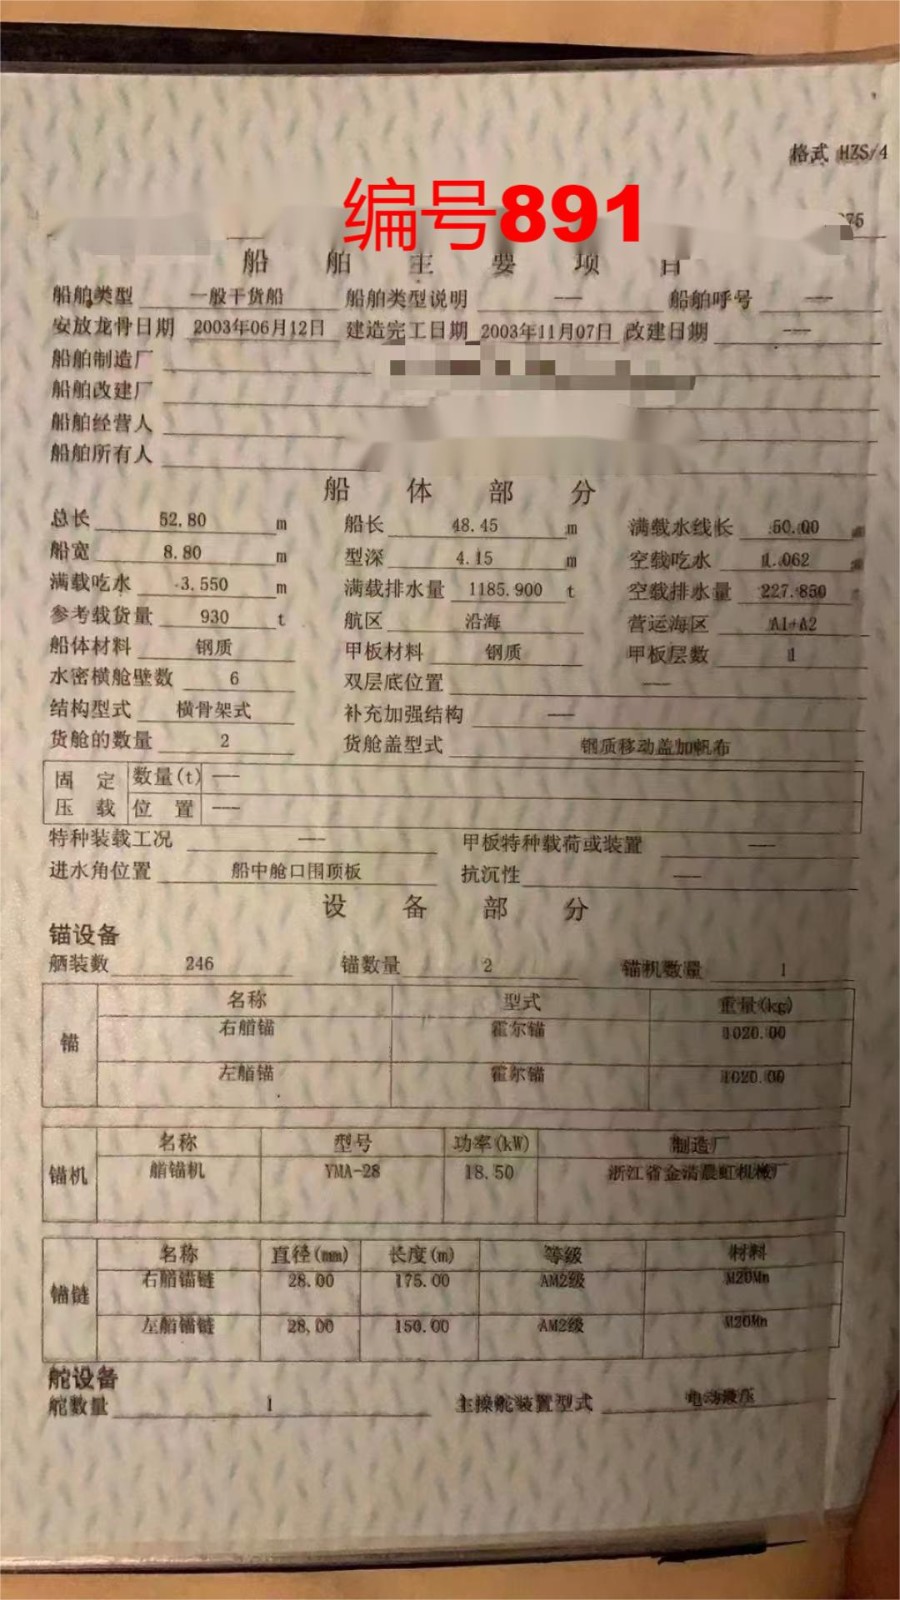 格式 HZS/4
编号891
船舶主要项目
船舶类型 一般干货船 船舶类型说明 —— 船舶呼号 ——
安放龙骨日期 2003年06月12日 建造完工日期 2003年11月07日 改建日期 ——
船舶制造厂
船舶改建厂
船舶经营人
船舶所有人
船体部分
总长 52.80 m 船长 48.45 m 满载水线长 50.00
船宽 8.80 m 型深 4.15 m 空载吃水 1.062
满载吃水 3.550 m 满载排水量 1185.900 t 空载排水量 227.850
参考载货量 930 t 航区 沿海 营运海区 A1+A2
船体材料 钢质 甲板材料 钢质 甲板层数 1
水密横舱壁数 6 双层底位置 ——
结构型式 横骨架式 补充加强结构 ——
货舱的数量 2 货舱盖型式 钢质移动盖加帆布
固定 数量(t) ——
压载 位置 ——
特种装载工况 —— 甲板特种载荷或装置 ——
进水角位置 船中舱口围顶板 抗沉性 ——
设备部分
锚设备
舾装数 246 锚数量 2 锚机数量 1
名称 型式 重量(kg)
锚 右艏锚 霍尔锚 1020.00
左艏锚 霍尔锚 1020.00
名称 型号 功率(kW) 制造厂
锚机 艏锚机 YMA-28 18.50 浙江省金清晨虹机械厂
名称 直径(mm) 长度(m) 等级 材料
锚链 右艏锚链 28.00 175.00 AM2级 M20Mn
左艏锚链 28.00 150.00 AM2级 M20Mn
舵设备
舵数量 1 主操舵装置型式 电动液压